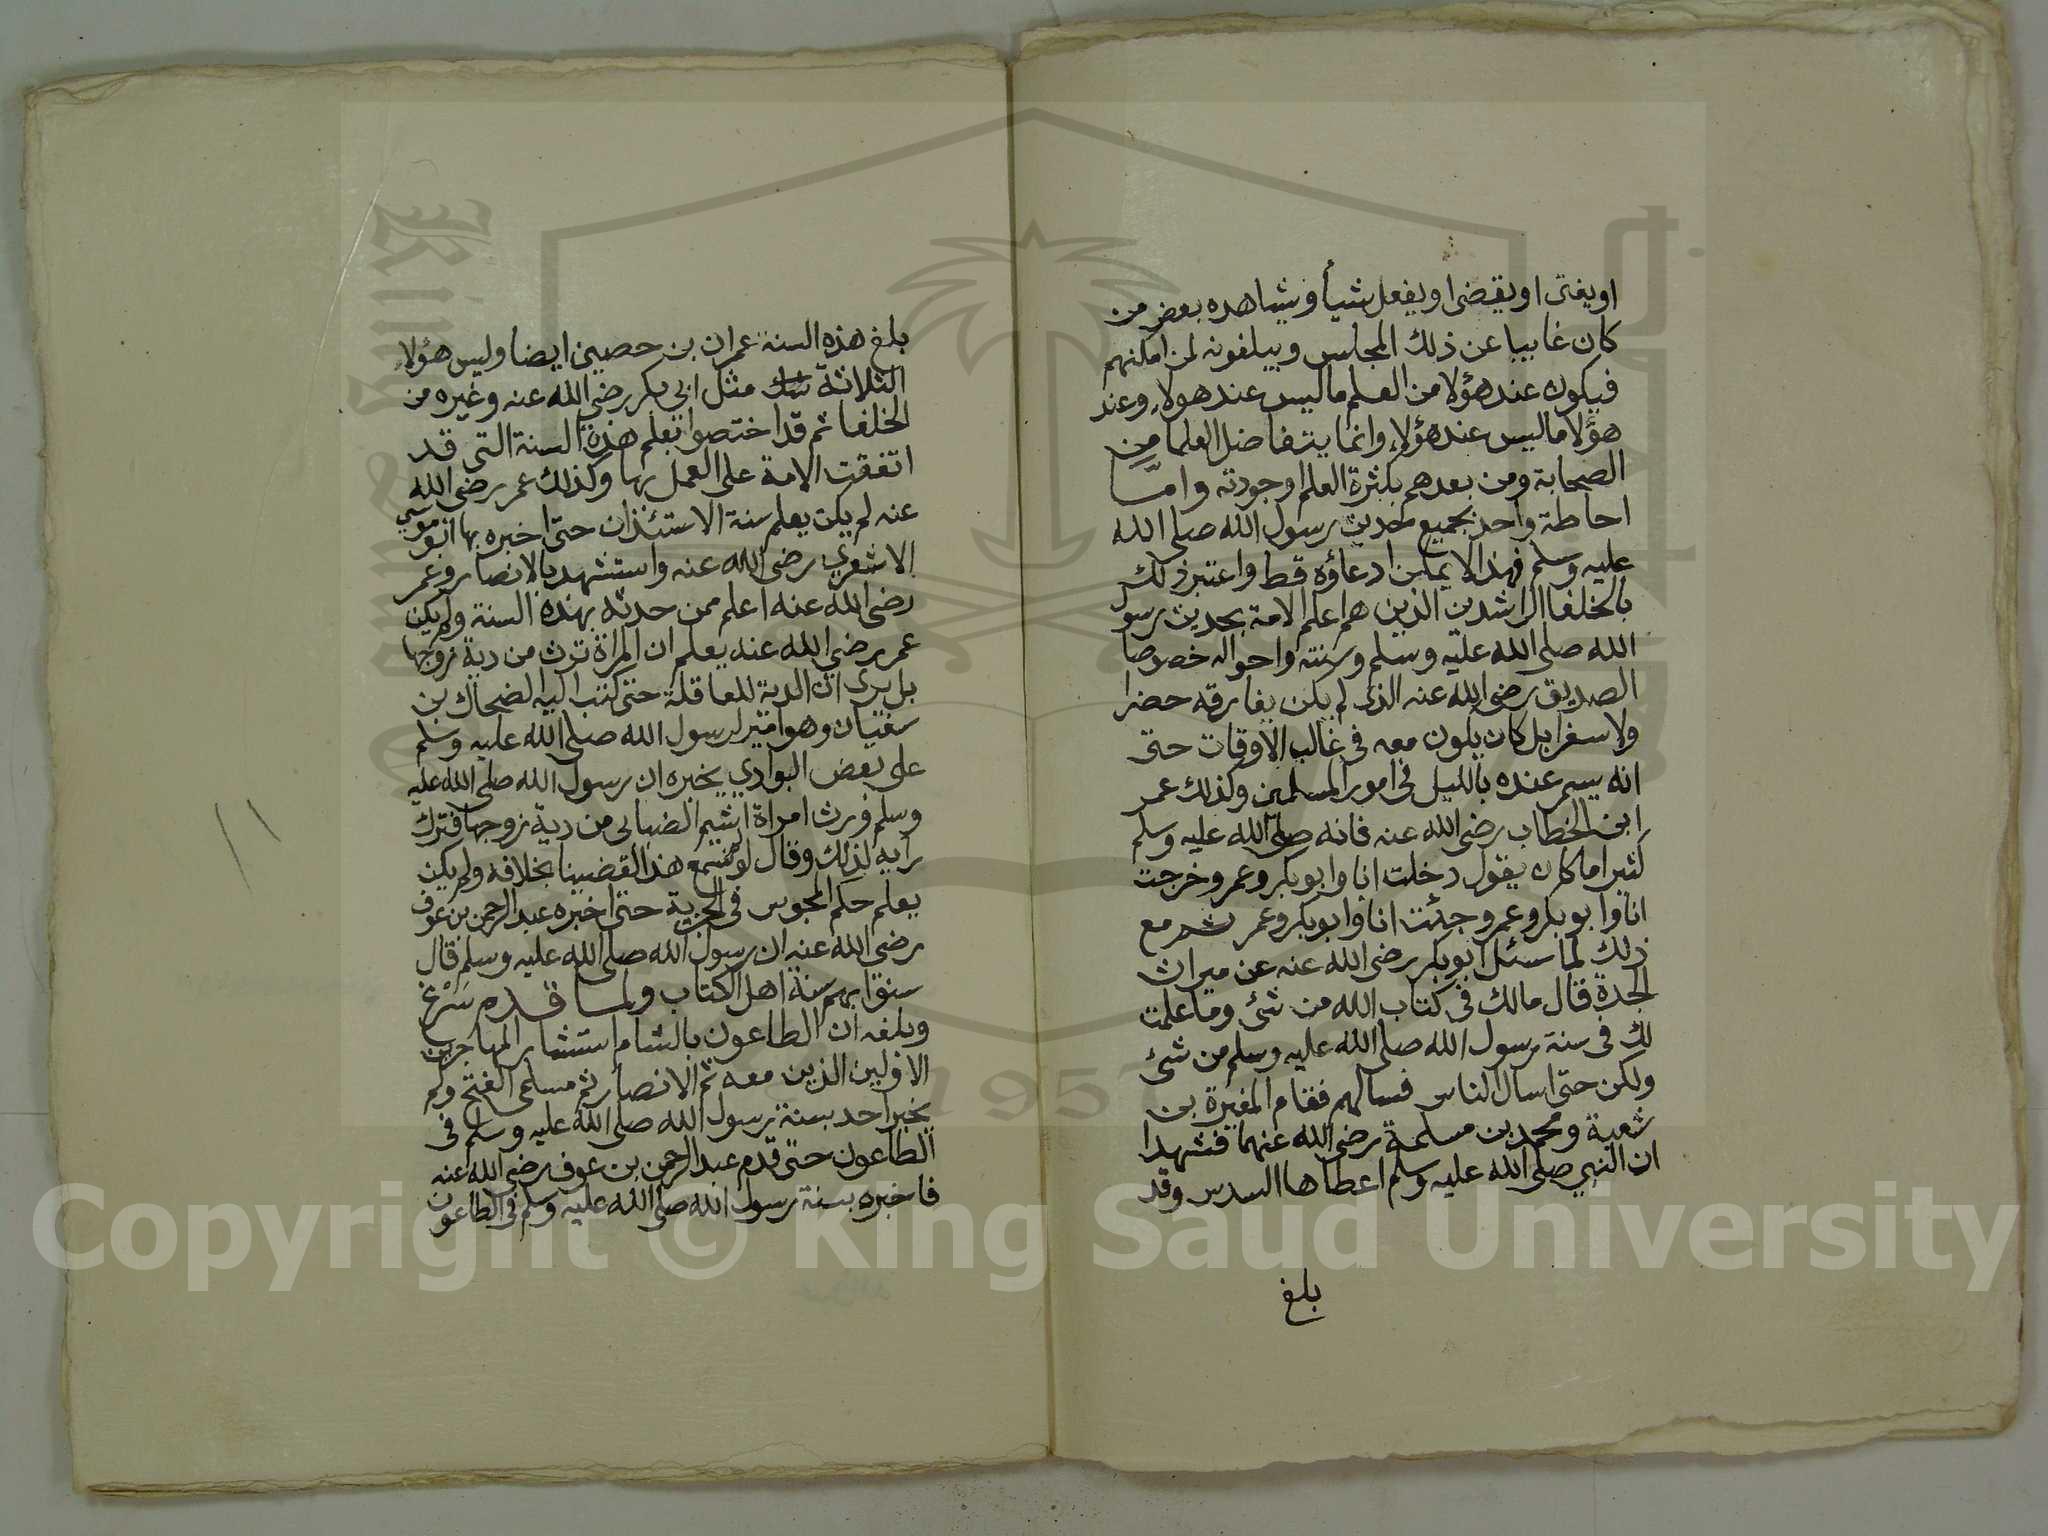 او يفتى او يقضى او يفعل شيأ ويشاهده بعض من
كان غايبا عن ذلك المجلس ويبلغونه لمن امكنهم
فيكون عند هؤلا من العلم ما ليس عند هولاء وعند
هؤلا ما ليس عند هؤلاء وانما يتفاضل العلما من
الصحابة ومن بعدهم بكثرة العلم اوجودته واما
احاطة واحد بجميع حديث رسول الله صلى الله
عليه وسلم فهذا لا يمكن ادعاؤه قط واعتبر ذلك
بالخلفا الراشدين الذين هم اعلم الامة بحديث رسول
الله صلى الله عليه وسلم وسنته واحواله خصوصا
الصديق رضى الله عنه الذى لم يكن يفارقه حضرا
ولا سفرا بل كان يكون معه فى غالب الاوقات حتى
انه يسمر عنده بالليل فى امور المسلمين وكذلك عمر
ابن الخطاب رضى الله عنه فانه صلى الله عليه وسلم
كثيرا ما كان يقول دخلت انا وابو بكر وعمر وخرجت
انا وابو بكر وعمر وجئت انا وابو بكر وعمر ثم مع
ذلك لما سئل ابو بكر رضى الله عنه عن ميراث
الجدة قال مالك فى كتاب الله من شئ وما علمت
لك فى سنة رسول الله صلى الله عليه وسلم من شئ
ولكن حتى اسال الناس فسالهم فقام المغيرة بن
شعبة ومحمد بن مسلمة رضى الله عنهما فشهدا
ان النبي صلى الله عليه وسلم اعطاها السدس وقد
بلغ
بلغ هذه السنة عمران بن حصين ايضا وليس هؤلاء
الثلاثة مثل ابى بكر رضى الله عنه وغيره من
الخلفا ثم قد اختصوا بعلم هذه السنة التى قد
اتفقت الامة على العمل بها وكذلك عمر رضى الله
عنه لم يكن يعلم سنة الاستئذان حتى اخبره بها ابو موسى
الاشعري رضى الله عنه واستشهد بالانصار وعمر
رضى الله عنه اعلم ممن حدثه بهذه السنة ولم يكن
عمر رضى الله عنه يعلم ان المراة ترث من دية زوجها
بل يرى ان الدية للعاقلة حتى كتب اليه الضحاك بن
سفيان وهو امير لرسول الله صلى الله عليه وسلم
على بعض البوادي يخبره ان رسول الله صلى الله عليه
وسلم ورث امراة اشيم الضبابى من دية زوجها فترك
رايه لذلك وقال لو لم نسمع هذا لقضينا بخلافه ولم يكن
يعلم حكم المجوس فى الجزية حتى اخبره عبد الرحمن بن عوف
رضى الله عنه ان رسول الله صلى الله عليه وسلم قال
سنوا بهم سنة اهل الكتاب ولما قدم سرغ
وبلغه ان الطاعون بالشام استشار المهاجرين
الاولين الذين معه ثم الانصار ثم مسلمى الفتح ولم
يخبر احد بسنة رسول الله صلى الله عليه وسلم فى
الطاعون حتى قدم عبد الرحمن بن عوف رضى الله عنه
فاخبره بسنة رسول الله صلى الله عليه وسلم فى الطاعون
1957
Copyright © King Saud University